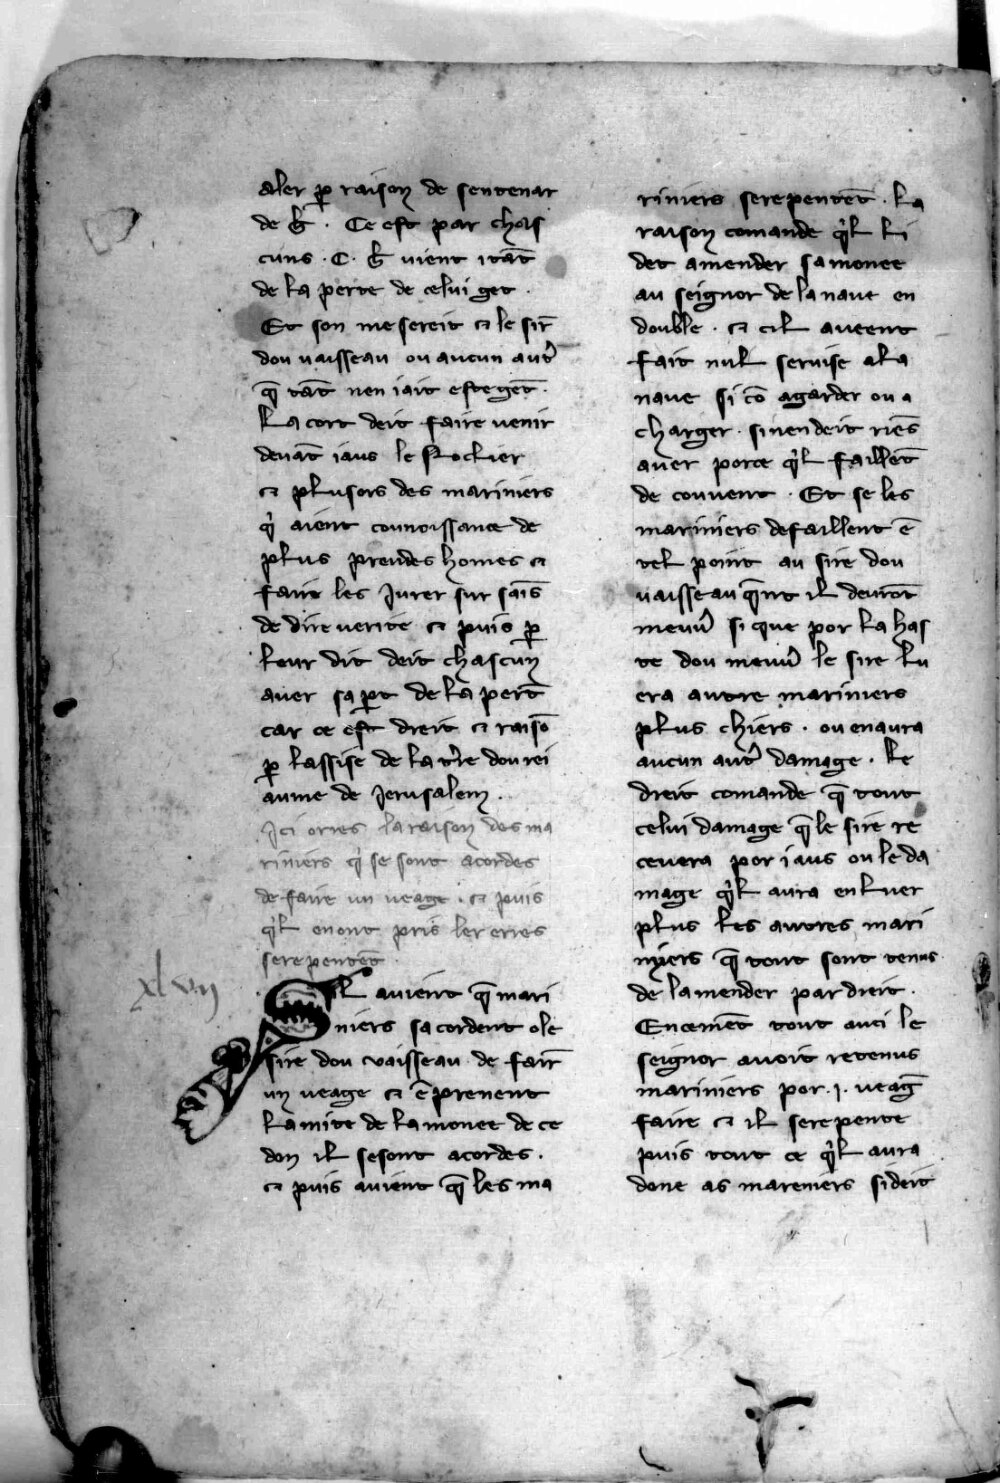 aler ꝑ raison de sentenar
de b̄. Ce est par chas
cuns .C. b̄ uient itāt
de la perte de celui get.
Et son mesereit ⁊ le sir̄
dou uaisseau ou aucun aut̉
q̄ tāt nen iait este get̄.
La cort deit faire uenir
deuāt iaus le nochier
⁊ plusors des mariniers
q̉ aient connoissance de
plus preudes homes ⁊
faire les Jurer sur sais̄
de dire uerite ⁊ puis ꝑ
leur dit deit chascun
auer sa ꝑt de la pert̄
car ce est dreit ⁊ raisō
ꝑ lassise de la t̉re dou rei
aume de Jerusalem.
Ici orres la raison des ma
riniers q̉ se sont acordes
de faire un ueage . ⁊ puis
q̉l enont pris ler erres
serepentēt
xlvij
Sil auient q̄ mari
niers sacordent ole
sire dou vaisseau de fair̄
un ueage ⁊ ēprenent
la mite de la monee de ce
don il sesont acordes.
⁊ puis auient q̄ les ma
riniers serepentēt. La
raison comande q̉l li
det amender sa monee
au seignor de la naue en
double. ⁊ cil aueent
fait nul seruise ala
naue si cō agarder ou a
charger. sinendeit riēs
auer porce q̉l faillēt
de couuent. Et se les
mariniers defaillent ē
tel point au sire dou
uaisseau q̄nt il deurōt
meuủ si que por la has
te dou meuủ le sire lu
era autre mariniers
plus chiers. ou enaura
aucun aut̉ damage. Le
dreit comande q̄ tout
celui damage q̄ le sire re
ceuera por iaus ou le da
mage q̉l aura enluer
plus les autres mari
nyers q̄ tout sont tenus
de lamender par dreit.
Encemēt tout auci le
seignor auoit retenus
mariniers por .j. ueaḡ
faire ⁊ il serepente
puis tout ce q̉l aura
done as mareniers si deit